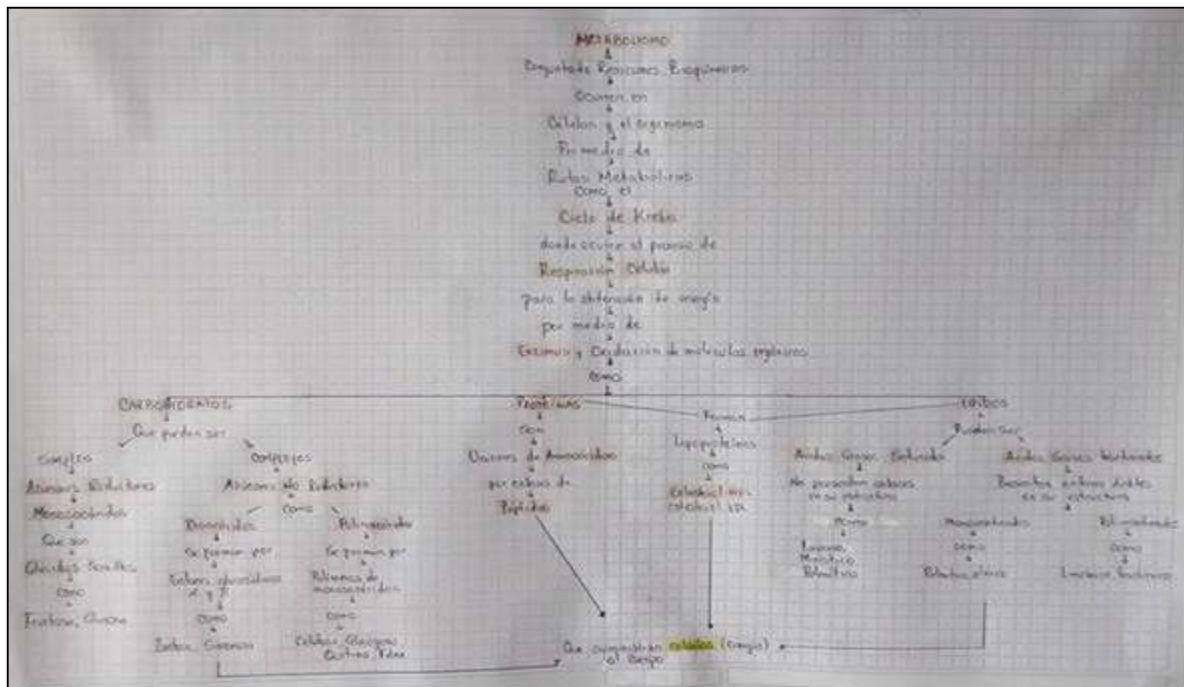 METABOLISMO
Conjunto de Reacciones Bioquímicas
Ocurren en
Células y el organismo
Por medio de
Rutas Metabólicas
como el
Ciclo de Krebs
donde ocurre el proceso de
Respiración Celular
para la obtención de energía
por medio de
y Oxidación de moléculas orgánicas
como
CARBOHIDRATOS
Que pueden ser
Azúcares Reductores
Monosacáridos
Que son
Glúcidos Sencillos
como
Fructosa, Glucosa
Complejos
Azúcares No Reductores
como
Disacáridos
Se forman por
Enlaces glucosídicos
α y β
como
Sacarosa
Polisacáridos
Se forman por
Polímeros de
monosacáridos
como
Celulosa, Glucógeno
PROTEÍNAS
son
Uniones de Aminoácidos
por enlaces de
Péptidos
Forman
Lipoproteínas
como
LÍPIDOS
Pueden ser
Ácidos Grasos Saturados
No presentan enlaces
en su estructura
como
Mirístico
Palmítico
Ácidos Grasos Insaturados
Presentan enlaces dobles
en su estructura
Monoinsaturados
como
Poliinsaturados
como
Que suministran calorías (energía)
al cuerpo